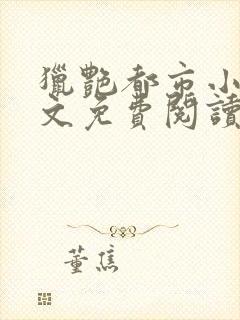 獵艷都市小
文免費閱讀
董焦